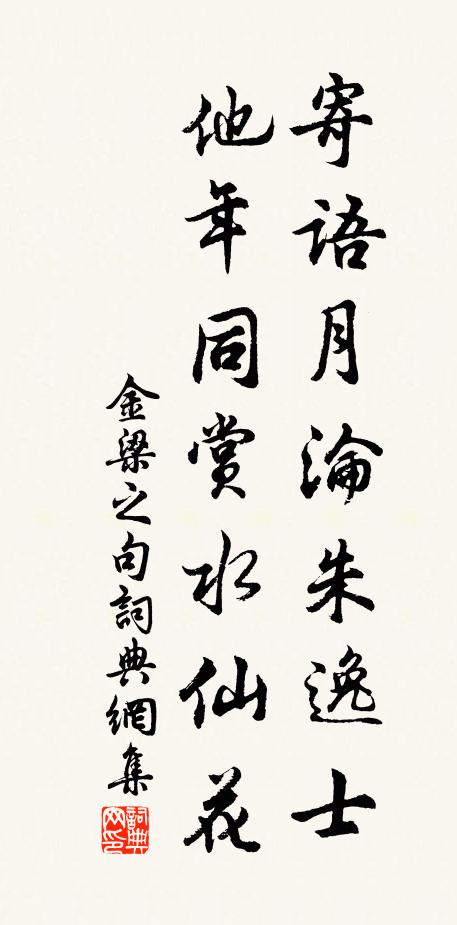 寄語月淪朱逸士
他年同賞水仙花
金梁之句詞典網集
詞典网印